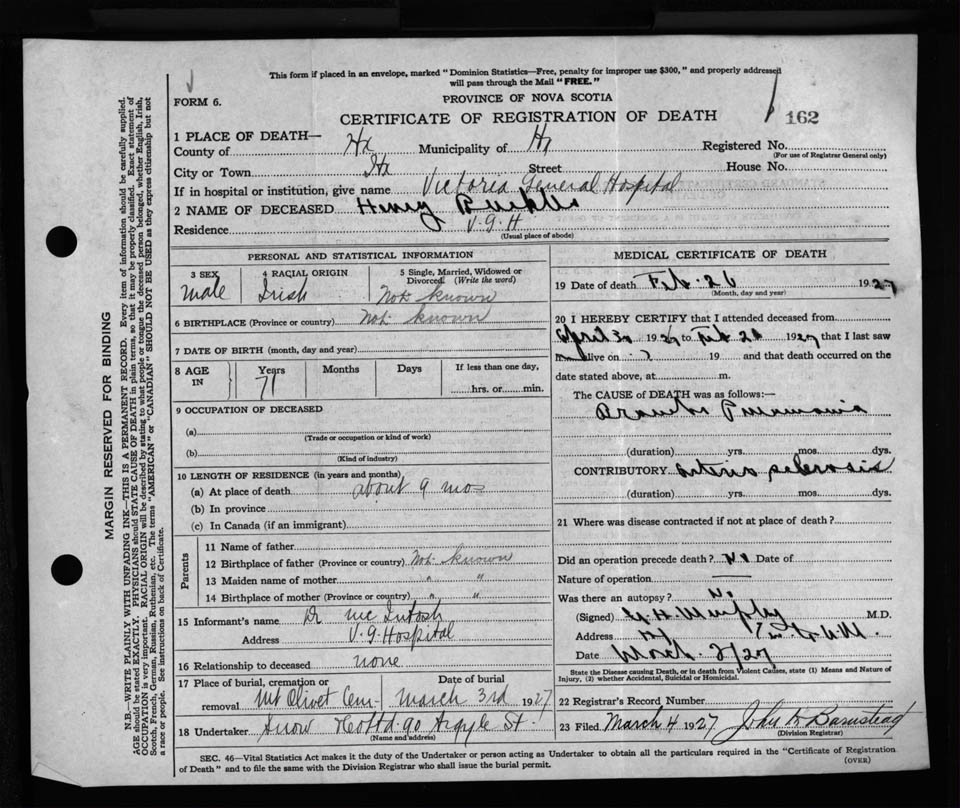 This form if placed in an envelope, marked "Dominion Statistics—Free, penalty for improper use $300," and properly addressed
will pass through the Mail "FREE."
FORM 6.
PROVINCE OF NOVA SCOTIA
CERTIFICATE OF REGISTRATION OF DEATH
162
1 PLACE OF DEATH—
County of Hx Municipality of Hx Registered No.
(For use of Registrar General only)
City or Town Hx Street House No.
If in hospital or institution, give name Victoria General Hospital
2 NAME OF DECEASED Henry
Residence V.G.H
(Usual place of abode)
PERSONAL AND STATISTICAL INFORMATION
3 SEX 4 RACIAL ORIGIN 5 Single, Married, Widowed or Divorced. (Write the word)
Male Irish Not known
6 BIRTHPLACE (Province or country) Not known
7 DATE OF BIRTH (month, day and year)
8 AGE IN Years Months Days If less than one day,
71 hrs. or min.
9 OCCUPATION OF DECEASED
(a)
(Trade or occupation or kind of work)
(b)
(Kind of industry)
10 LENGTH OF RESIDENCE (in years and months)
(a) At place of death about 9 mos
(b) In province
(c) In Canada (if an immigrant)
Parents
11 Name of father
12 Birthplace of father (Province or country) Not known
13 Maiden name of mother " "
14 Birthplace of mother (Province or country) " "
15 Informant's name Dr McIntosh
Address V.G Hospital
16 Relationship to deceased none
17 Place of burial, cremation or removal Mt Olivet Cem Date of burial March 3rd 1927
18 Undertaker Snow & Co Ltd 90 Argyle St.
(Name and address)
MEDICAL CERTIFICATE OF DEATH
19 Date of death Feb. 26 1927
(Month, day and year)
20 I HEREBY CERTIFY that I attended deceased from
April 1926 to Feb 26 1927 that I last saw
alive on 19 and that death occurred on the
date stated above, at m.
The CAUSE of DEATH was as follows:—
Broncho Pneumonia
(duration) yrs. mos. dys.
CONTRIBUTORY arterio sclerosis
(duration) yrs. mos. dys.
21 Where was disease contracted if not at place of death?
Did an operation precede death? No Date of
Nature of operation —
Was there an autopsy? No
(Signed) G.H. Murphy M.D.
Address Hx
Date March 2/27
State the Disease causing Death, or in death from Violent Causes, state (1) Means and Nature of
Injury, (2) whether Accidental, Suicidal or Homicidal.
22 Registrar's Record Number
23 Filed March 4 1927 John A Barnstead
(Division Registrar)
SEC. 46—Vital Statistics Act makes it the duty of the Undertaker or person acting as Undertaker to obtain all the particulars required in the "Certificate of Registration
of Death" and to file the same with the Division Registrar who shall issue the burial permit.
(OVER)
MARGIN RESERVED FOR BINDING
N.B.—WRITE PLAINLY WITH UNFADING INK—THIS IS A PERMANENT RECORD. Every item of information should be carefully supplied.
AGE should be stated EXACTLY. PHYSICIANS should STATE CAUSE OF DEATH in plain terms, so that it may be properly classified. Exact statement of
OCCUPATION is very important. RACIAL ORIGIN will be described by stating to what people or tongue the deceased person belonged, whether English, Irish,
Scotch, French, German, Russian, Ruthenian, etc. The terms "AMERICAN" or "CANADIAN" SHOULD NOT BE USED as they express citizenship but not
a race or people. See instructions on back of Certificate.